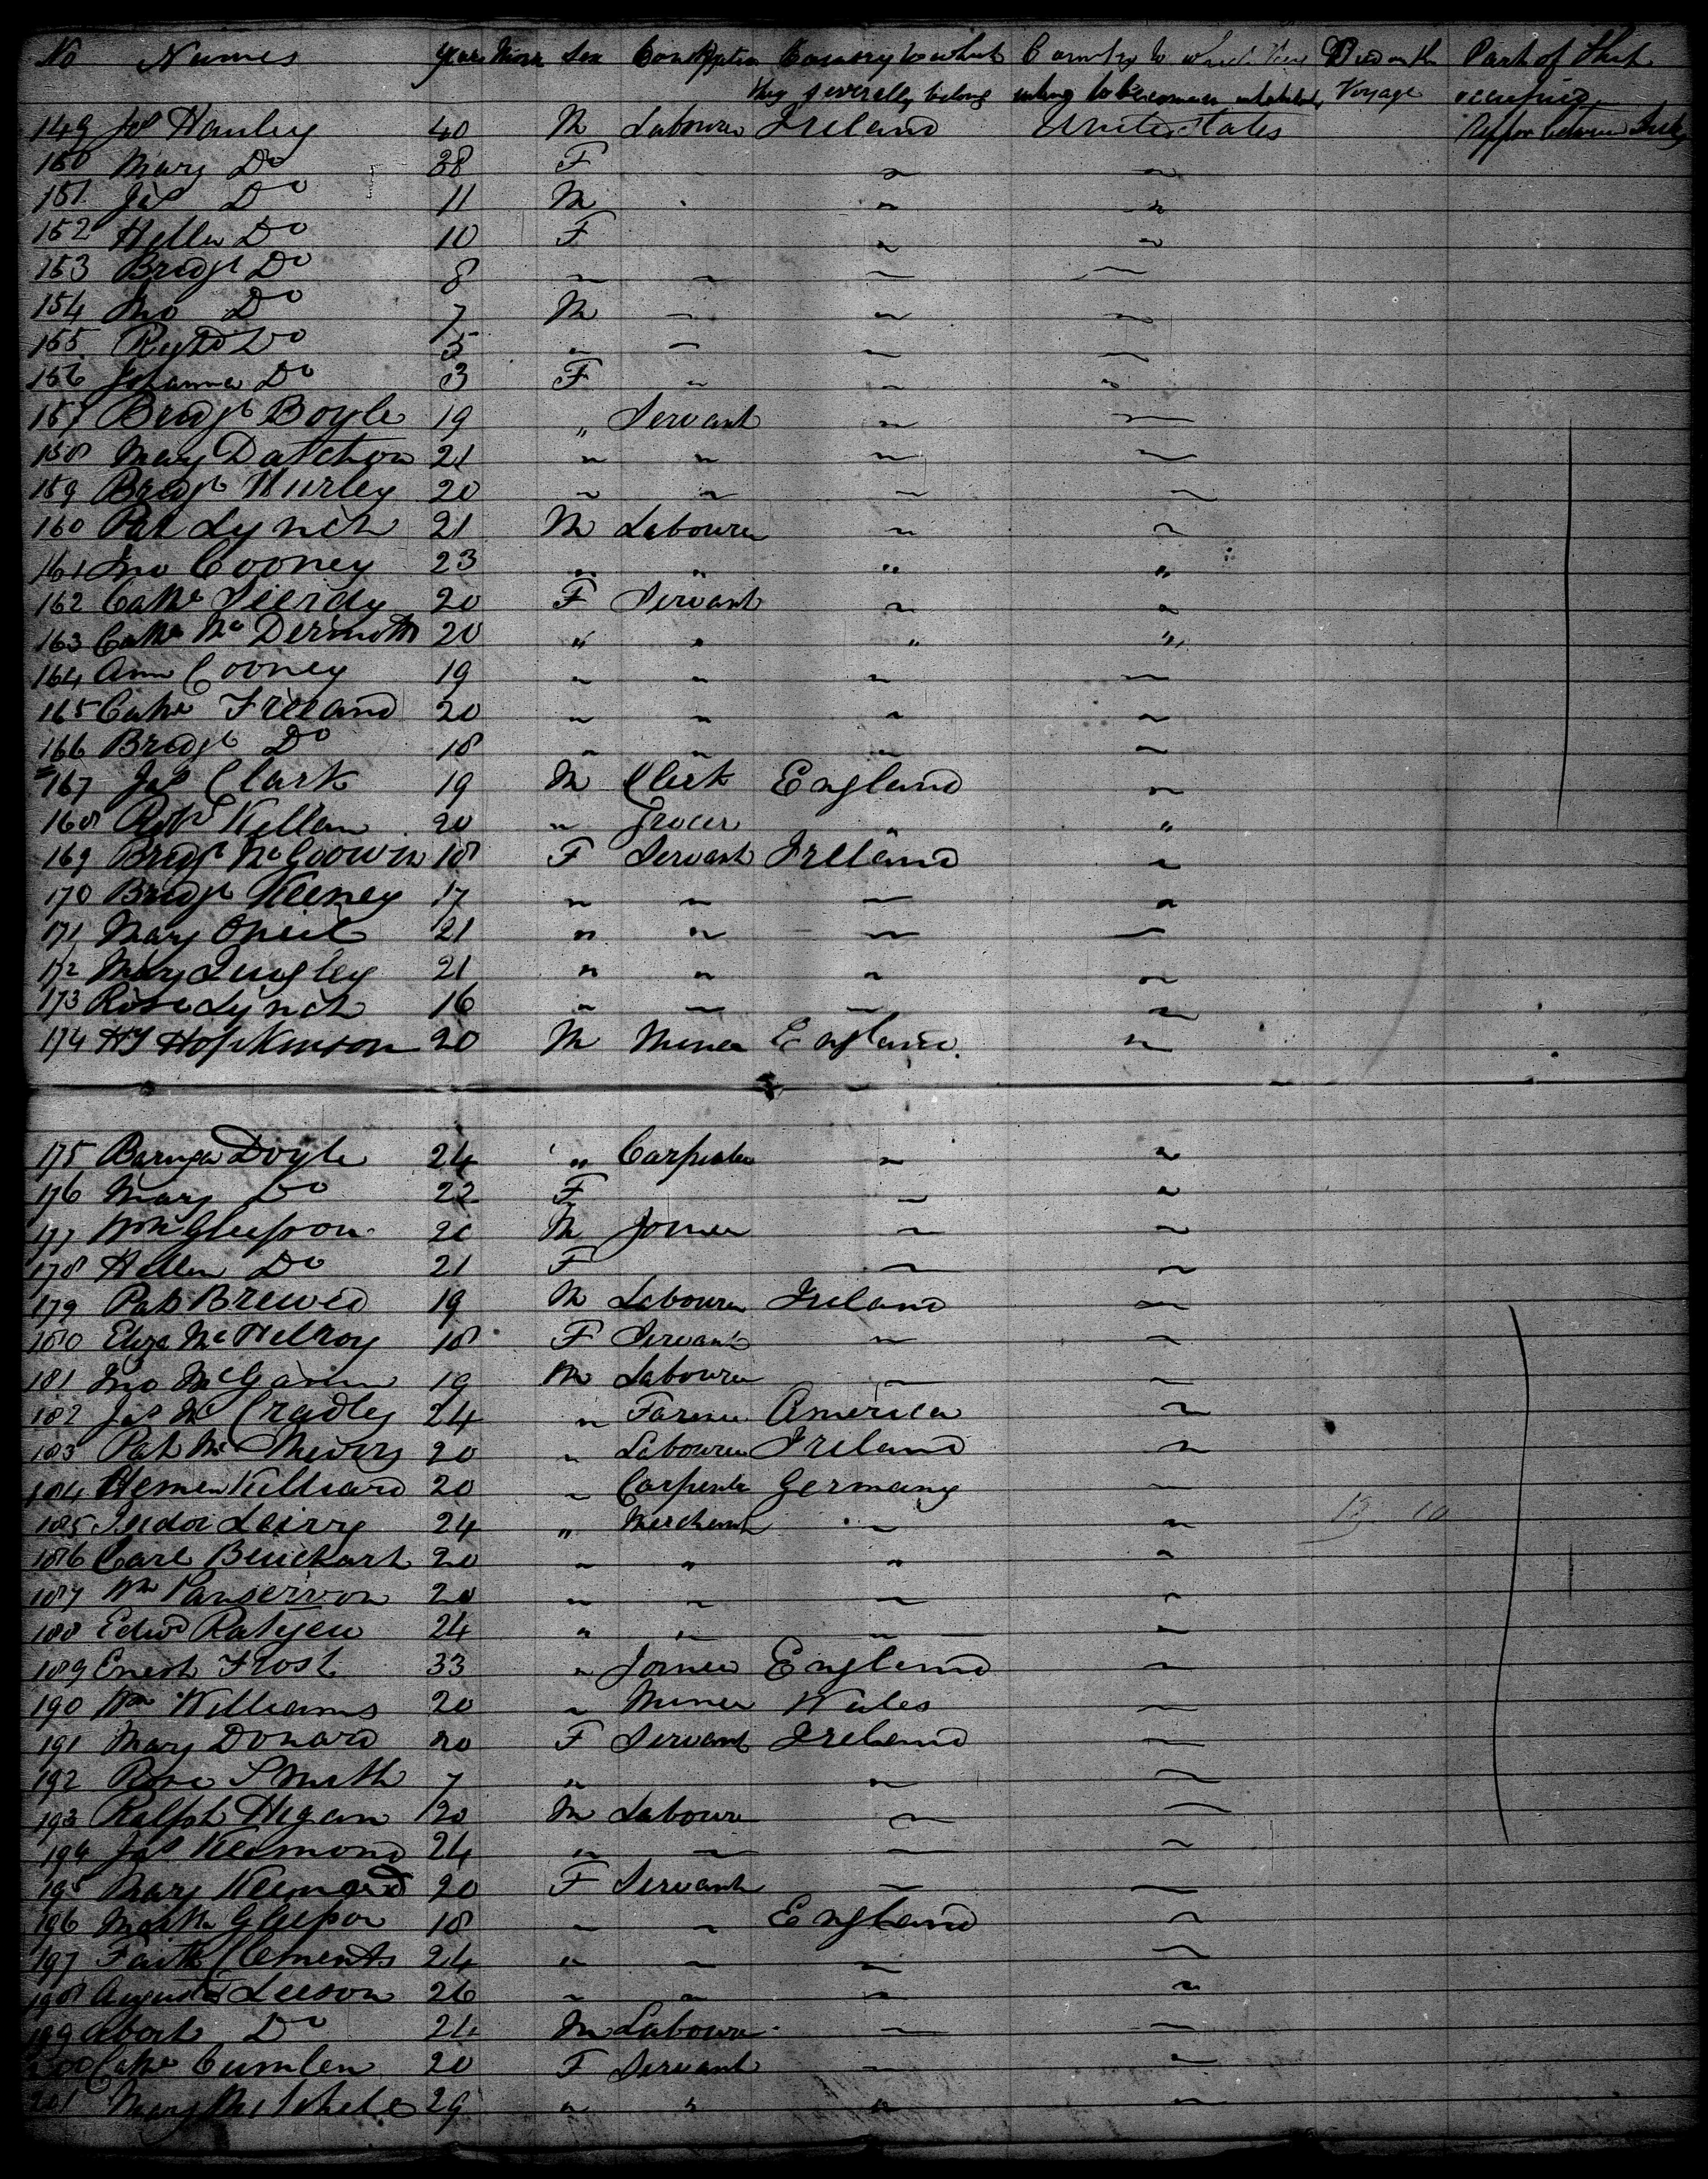 No Names Years Sex Occupation Country to which Country to which they Died on the Part of Ship
they severally belong intend to become inhabitants Voyage occupied
149 Jas Hanley 40 M Labourer Ireland United States Upper between Decks
150 Mary Do 38 F " "
151 Jas Do 11 M " "
152 Hellen Do 10 F " "
153 Bridgt Do 8 " " " "
154 Jno Do 7 M " " "
155 Richd Do 5 " " " "
156 Johanna Do 3 F " " "
157 Bridgt Boyle 19 " Servant " "
158 Mary 21 " " " "
159 Bridgt Hurley 20 " " " "
160 Pat Lynch 21 M Labourer " "
161 Jno Cooney 23 " " " "
162 Cathe 20 F Servant " "
163 Cathe McDermott 20 " " " "
164 Ann Cooney 19 " " " "
165 Cathe Freeland 20 " " " "
166 Bridgt Do 18 " " " "
167 Jas Clark 19 M Clerk England "
168 Robt Kellam 20 " Grocer " "
169 Bridgt McGowin 18 F Servant Ireland "
170 Bridgt Keeney 17 " " " "
171 Mary Oneil 21 " " " "
172 Mary 21 " " " "
173 Rose Lynch 16 " " " "
174 Hy Hopkinson 20 M Miner England "
175 Doyle 24 " Carpenter " "
176 Mary Do 22 F " "
177 Wm Gleeson 20 M Joiner " "
178 Hellen Do 21 F " "
179 Pat Brewed 19 M Labourer Ireland "
180 Eliza McHelroy 18 F Servant " "
181 Jno 19 M Labourer " "
182 Jas McCradley 24 " Farmer America "
183 Pat 20 " Labourer Ireland "
184 20 " Carpenter Germany "
185 24 " Merchant " "
186 Carl 20 " " " "
187 Wm 20 " " " "
188 Edwd Ratyen 24 " " " "
189 Ernest Frost 33 " Joiner England "
190 Wm Williams 20 " Miner Wales "
191 Mary Donard 20 F Servant Ireland "
192 Rose Smith 7 " " "
193 Ralph Hegan 20 M Labourer " "
194 Jas 24 " " " "
195 Mary 20 F Servant " "
196 Martha Gleeson 18 " " England "
197 Faith Clements 24 " " " "
198 Augusta Leeson 26 " " " "
199 Do 24 M Labourer " "
200 Cathe Cumlen 20 F Servant " "
201 Mary Mitchell 29 " " " "